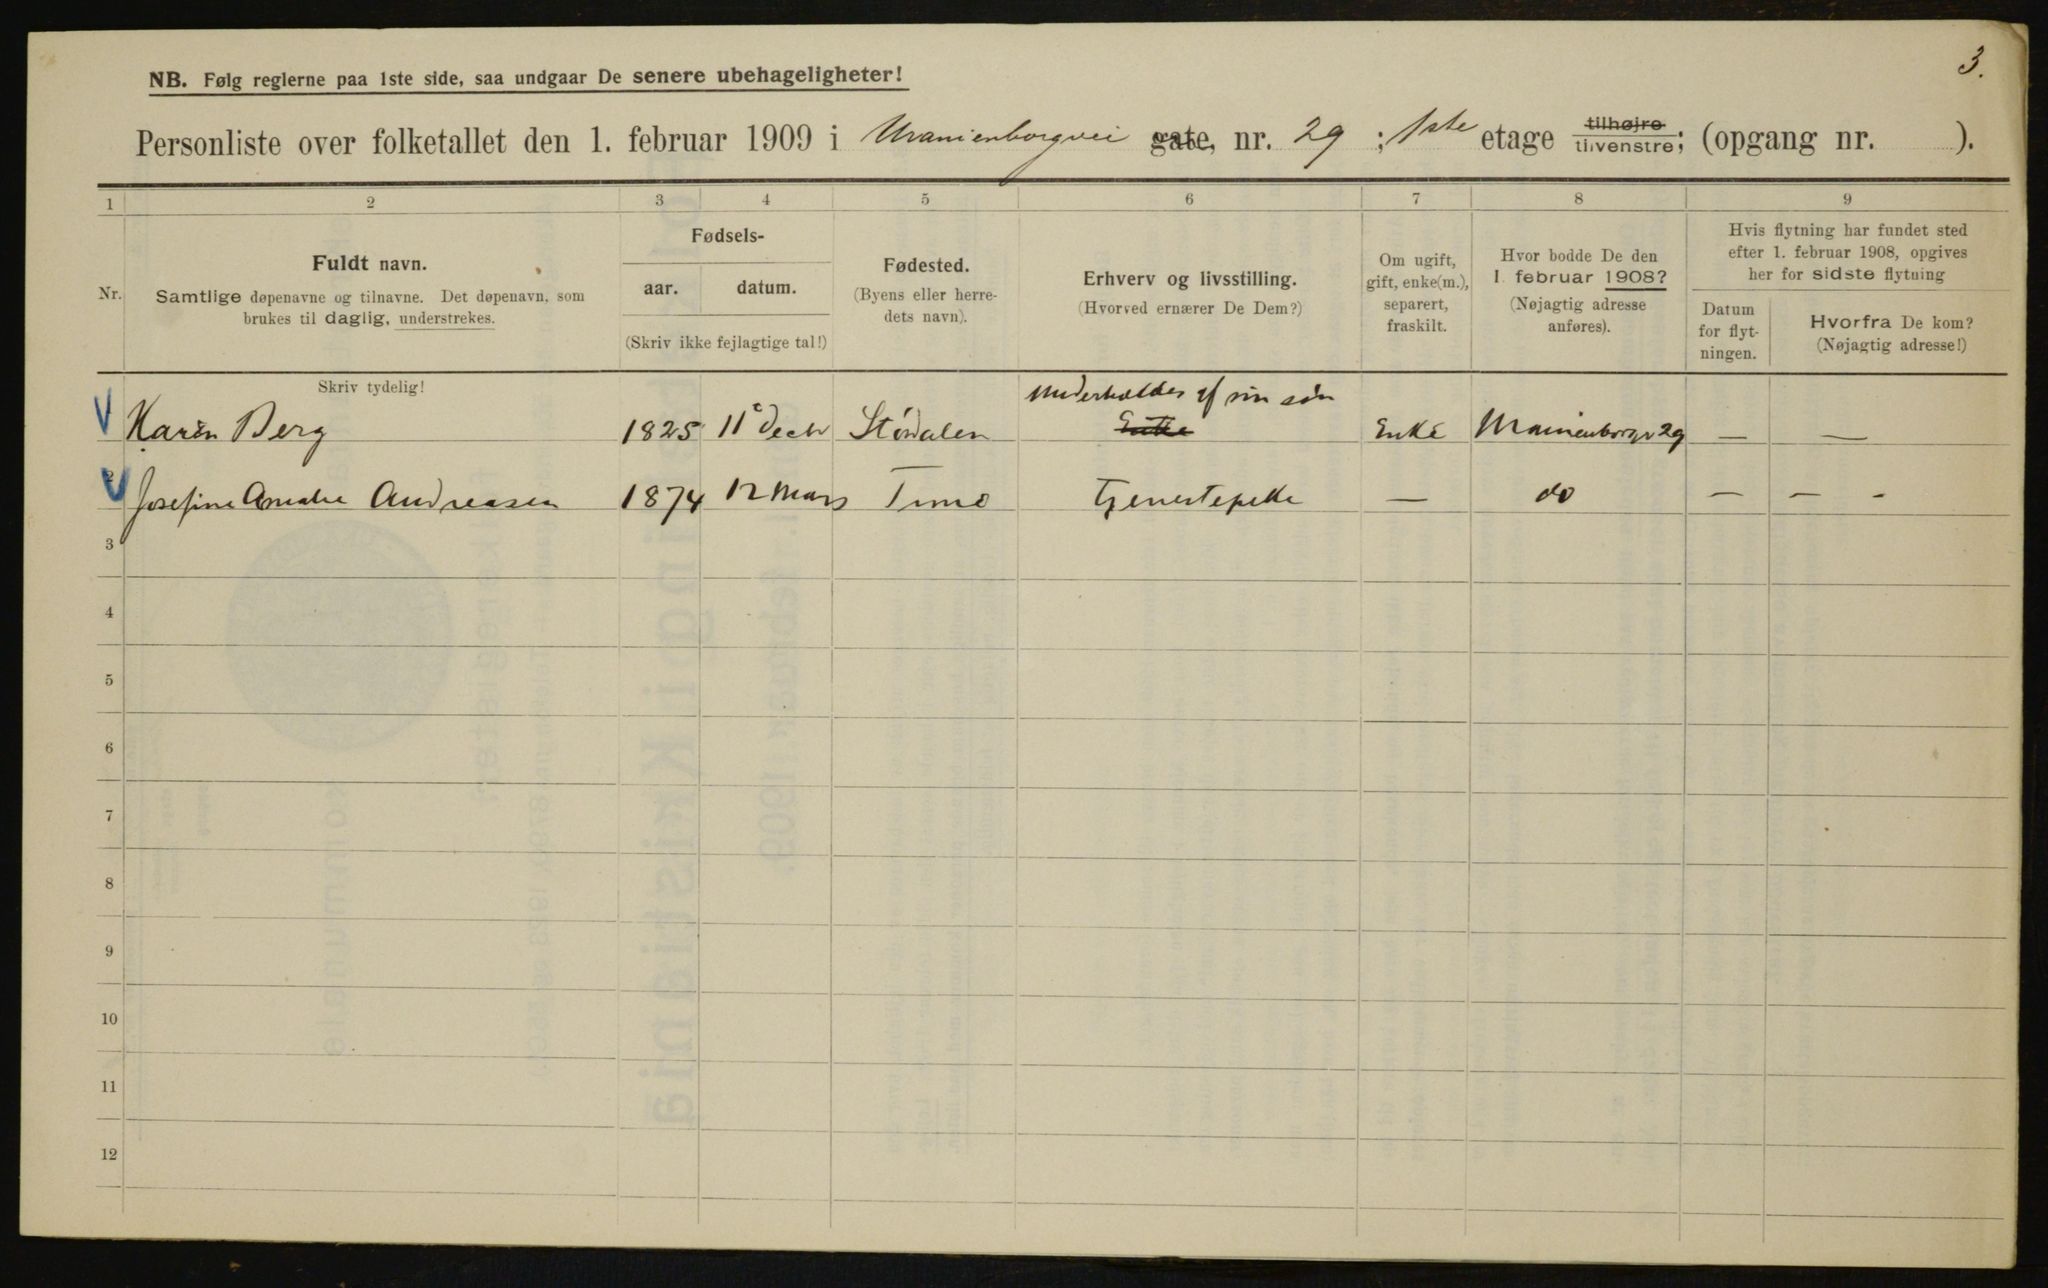 3.
NB. Følg reglerne paa 1ste side, saa undgaar De senere ubehageligheter!
Personliste over folketallet den 1. februar 1909 i Uranienborgvei gate, nr. 29 ; 1ste etage tilhøjre tilvenstre; (opgang nr. ).
1 2 3 4 5 6 7 8 9
Nr.
Fuldt navn.
Samtlige døpenavne og tilnavne. Det døpenavn, som
brukes til daglig, understrekes.
Skriv tydelig!
Fødsels-
aar. datum.
(Skriv ikke fejlagtige tal!)
Fødested.
(Byens eller herre-
dets navn).
Erhverv og livsstilling.
(Hvorved ernærer De Dem?)
Om ugift,
gift, enke(m.),
separert,
fraskilt.
Hvor bodde De den
1 februar 1908?
(Nøjagtig adresse
anføres).
Hvis flytning har fundet sted
efter 1. februar 1908, opgives
her for sidste flytning
Datum
for flyt-
ningen.
Hvorfra De kom?
(Nøjagtig adresse!)
Underholdes af sin søn
Karen Berg 1825 11 Decbr Størdalen Enke Enke Uranienborgv 29 — —
2 Josefine Amalie Andreasen 1874 12 Mars tjenestepike — do — — -
3
4
5
6
7
8
9
10
11
12